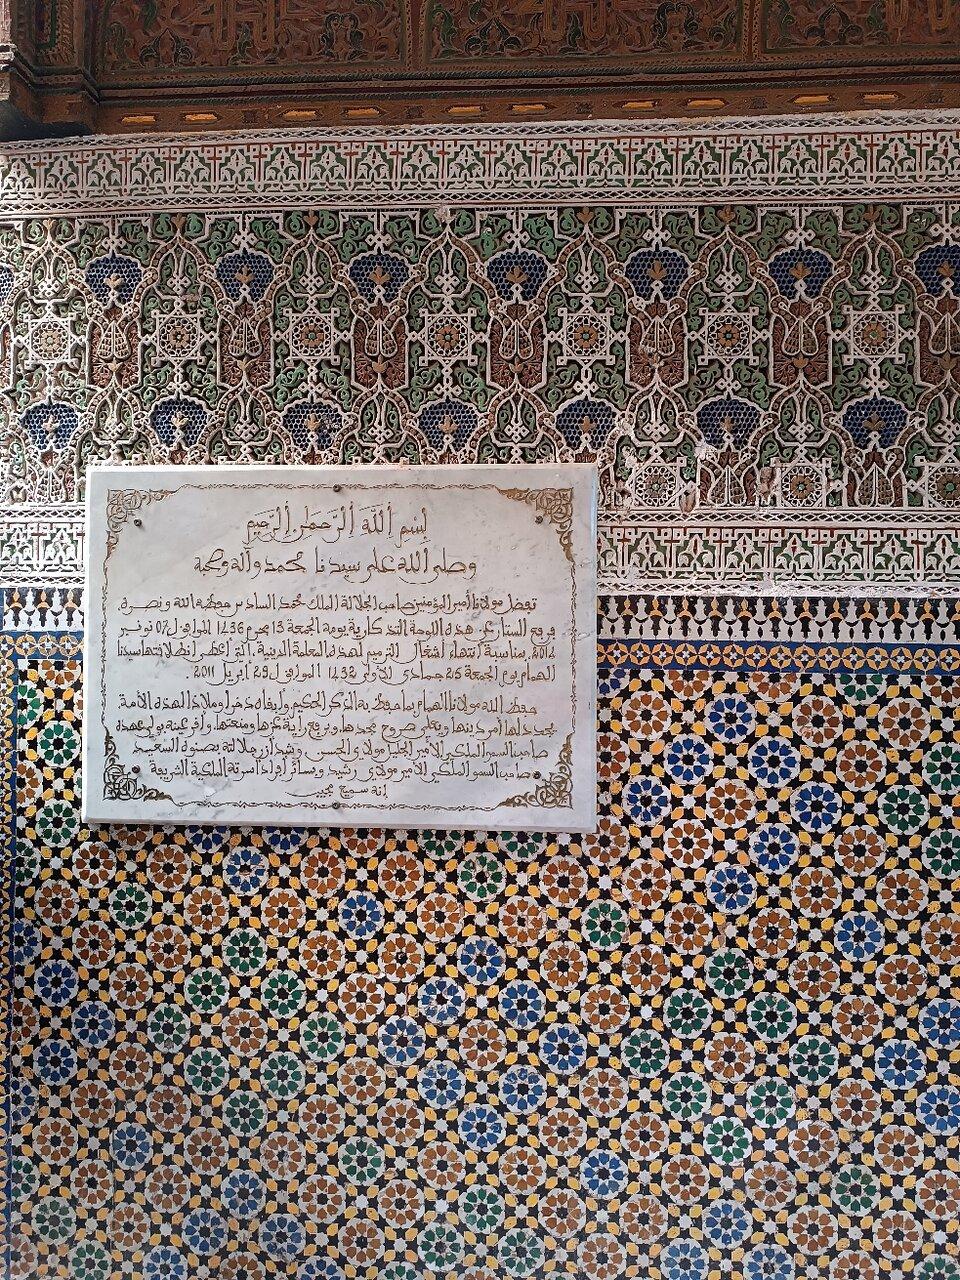 بسم الله الرحمن الرحيم
وصلى الله على سيدنا محمد وآله وصحبه
تفضل مولانا أمير المؤمنين صاحب الجلالة الملك محمد السادس حفظه الله ونصره
برفع الستار عن هذه اللوحة التذكارية يومه الجمعة 13 محرم 1436 الموافق ل 07 نونبر
2014 بمناسبة انتهاء أشغال الترميم لهذه المعلمة الدينية، التي أعطى انطلاقتها سيدنا
الهمام يوم الجمعة 25 جمادى الأولى 1432 الموافق ل 29 أبريل 2011.
حفظ الله مولانا الهمام بما حفظ به الذكر الحكيم وأبقاه ذخرا وملاذا لهذه الأمة
يجدد لها أمر دينها ويعلي صروح مجدها، ويرفع راية عزها ومنعتها، وأقر عينه بولي عهده
صاحب السمو الملكي الأمير الجليل مولاي الحسن، وشد أزر جلالته بصنوه السعيد
صاحب السمو الملكي الأمير مولاي رشيد وسائر أفراد أسرته الملكية الشريفة
إنه سميع مجيب